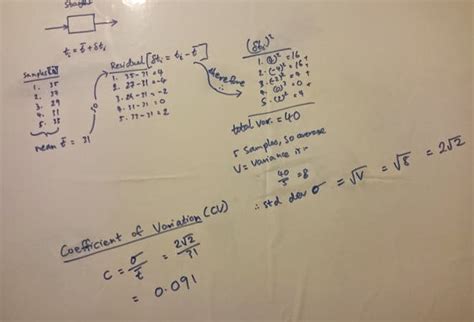 tᵢ = t̄ + δtᵢ
Samples
1. 35
2. 27
3. 29
4. 31
5. 33
mean t̄ = 31
Residual [δtᵢ = tᵢ - t̄]
1. 35-31 = 4
2. 27-31 = -4
3. 29-31 = -2
4. 31-31 = 0
5. 33-31 = 2
therefore
(δtᵢ)²
1. (4)² = 16 +
2. (-4)² = 16 +
3. (-2)² = 4 +
4. (0)² = 0 +
5. (2)² = 4
total var. = 40
5 samples, so average
V = Variance is :-
40/5 = 8
∴ std dev σ = √V = √8 = 2√2
Coefficient of Variation (CV)
C = σ/t̄ = 2√2/31
= 0.091